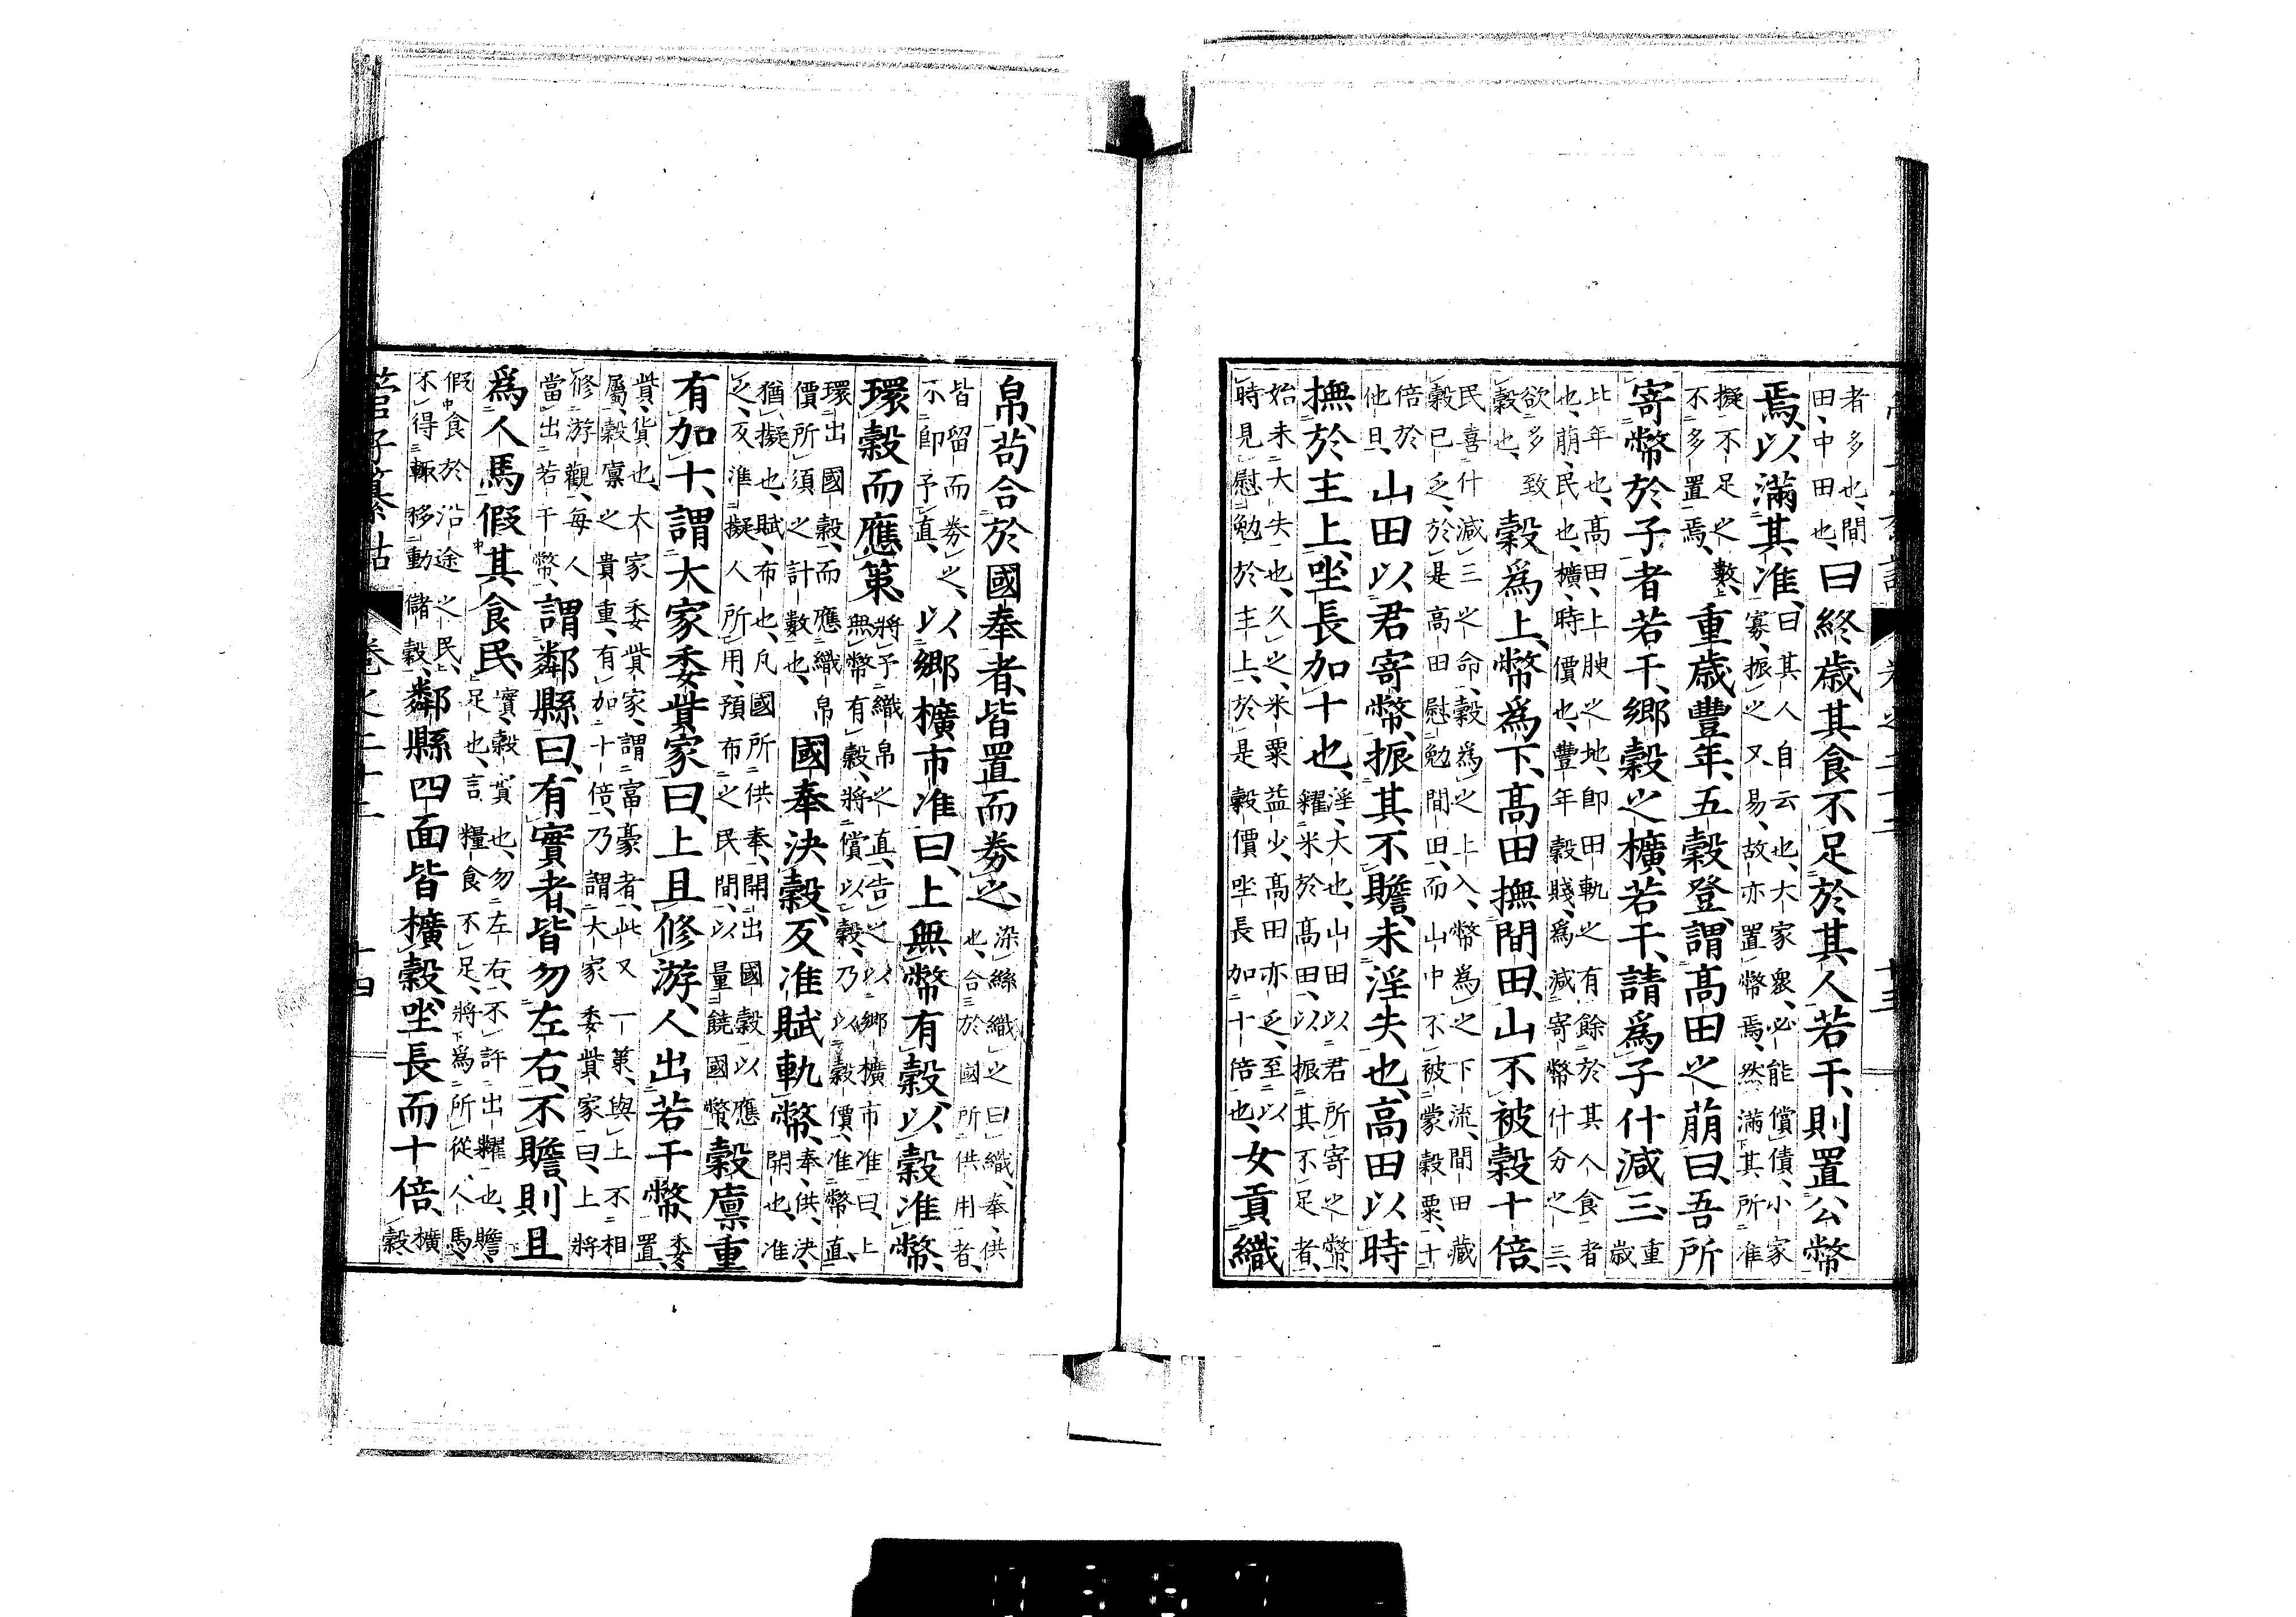 者多也、間
田、中田也、
曰終歲其食不足於其人若干、則置公幣
焉、以滿其准、
曰其人自云也、大家衆、必能償債、小家
寡、振之又易、故亦置幣焉、然滿其所准
擬不足之數、
不多置焉、
重歲豐年、五穀登、謂高田之萠曰、吾所
寄幣於子者若干、鄉穀之櫎若干、請爲子什減三、
重
歲
比年也、高田、上腴之地、即田軌之有餘於其人食者
也、萠、民也、櫎、時價也、豐年穀賤、爲減寄幣什分之三、
欲多致
穀也、
穀爲上、幣爲下、高田撫間田、山不被穀十倍、
民喜什減三之命、穀爲之上入、幣爲之下流、間田藏
穀已乏、於是高田慰勉間田、而山中不被蒙穀粟、十
倍於
他旦、
山田以君寄幣、振其不贍、未淫失也、高田以時
撫於主上、坐長加十也、
淫、大也、山田以君所寄之幣、
糴米於高田、以振其不足者、
始未大失也、久之、米粟益少、高田亦乏、至以
時見慰勉於主上、於是穀價坐長加十倍也、
女貢織
帛、苟合於國奉者、皆置而券之、
染絲織之曰織、奉、供
也、合於國所供用者、
皆留而券之、
不即予直、
以鄉櫎市准曰、上無幣有穀、以穀准幣、
環穀而應筞、
將予織帛之直、告之以鄉櫎市准曰、上
無幣有穀、將償以穀、乃以穀價、准幣直、
環出國穀、而應織帛
價所須之計數也、
國奉決穀、反准賦軌幣、
奉、供、決、
開也、准
猶擬也、賦、布也、凡國所供奉、開出國穀以應
之、反準擬人所用、預布之民間、以量饒國幣、
穀廩重
有加十、謂大家委貲家曰、上且修游、人出若干幣、
委、
置
貲、貨也、大家委貲家、謂富豪者、此又一筞、與上不相
屬、穀廩之貴重、有加十倍、乃謂大家委貲家曰、上將
修游觀、每人
當出若干幣、
謂鄰縣曰、有實者、皆勿左右、不贍、則且
爲人馬假其食民、
實、穀實也、勿左右、不許出糶也、贍、
足也、言糧食不足、將爲所從人馬、
假食於沿途之民、
不得輒移動儲穀、
鄰縣四面皆櫎、穀坐長而十倍、
櫎
穀
管子纂詁　卷之二十二　十四